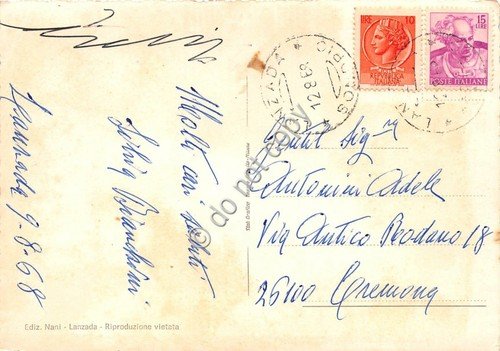 Lanzada 9-8-68
Molti cari saluti
Silvia
Gent. Sig.
Antonini Adele
Via Antico Rodano 18
26100 Cremona
LANZADA
SONDRIO
12.8.68
LIRE 10
POSTE ITALIANE
15 LIRE
POSTE ITALIANE
Ediz. Nani - Lanzada - Riproduzione vietata
do not copy